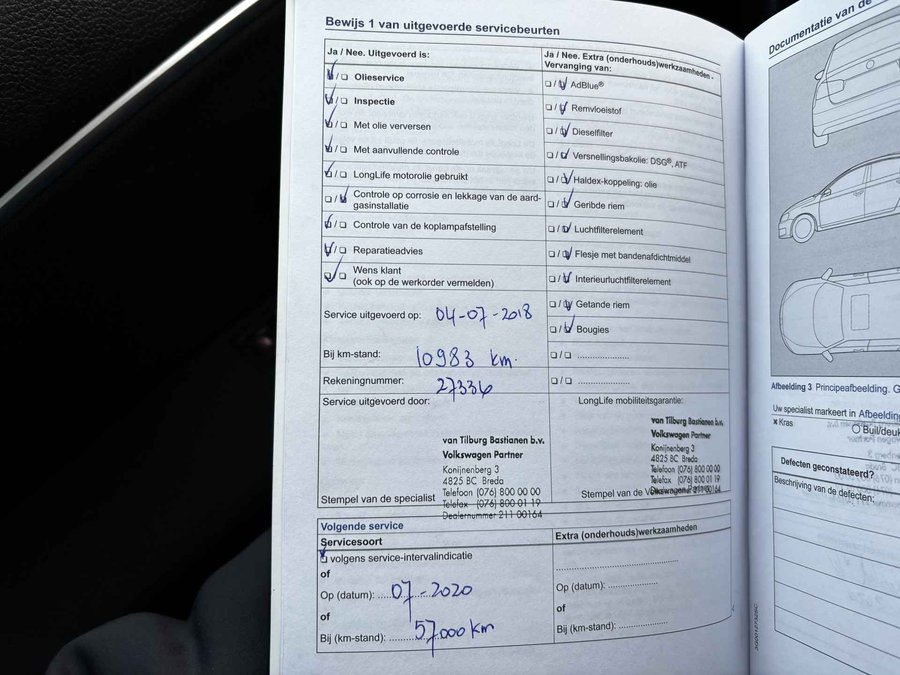 Bewijs 1 van uitgevoerde servicebeurten
Ja / Nee. Uitgevoerd is:
Olieservice
Inspectie
Met olie verversen
Met aanvullende controle
LongLife motorolie gebruikt
Controle op corrosie en lekkage van de aard-
gasinstallatie
Controle van de koplampafstelling
Reparatieadvies
Wens klant
(ook op de werkorder vermelden)
Ja / Nee. Extra (onderhouds)werkzaamheden -
Vervanging van:
AdBlue®
Remvloeistof
Dieselfilter
Versnellingsbakolie: DSG®, ATF
Haldex-koppeling: olie
Geribde riem
Luchtfilterelement
Flesje met bandenafdichtmiddel
Interieurluchtfilterelement
Getande riem
Bougies
Service uitgevoerd op: 04-07-2018
Bij km-stand: 10983 km.
Rekeningnummer: 27336
Service uitgevoerd door:
van Tilburg Bastianen b.v.
Volkswagen Partner
Konijnenberg 3
4825 BC Breda
Telefoon (076) 800 00 00
Telefax (076) 800 01 19
Dealernummer 211 00164
Stempel van de specialist
LongLife mobiliteitsgarantie:
van Tilburg Bastianen b.v.
Volkswagen Partner
Konijnenberg 3
4825 BC Breda
Telefoon (076) 800 00 00
Telefax (076) 800 01 19
Dealernummer 211 00164
Stempel van de
Volgende service
Servicesoort
volgens service-intervalindicatie
of
Op (datum): 07-2020
of
Bij (km-stand): 57000 km
Extra (onderhouds)werkzaamheden
Op (datum):
of
Bij (km-stand):
Documentatie van de
Afbeelding 3 Principeafbeelding. G
Uw specialist markeert in Afbeelding
× Kras
Buil/deuk
Defecten geconstateerd?
Beschrijving van de defecten: